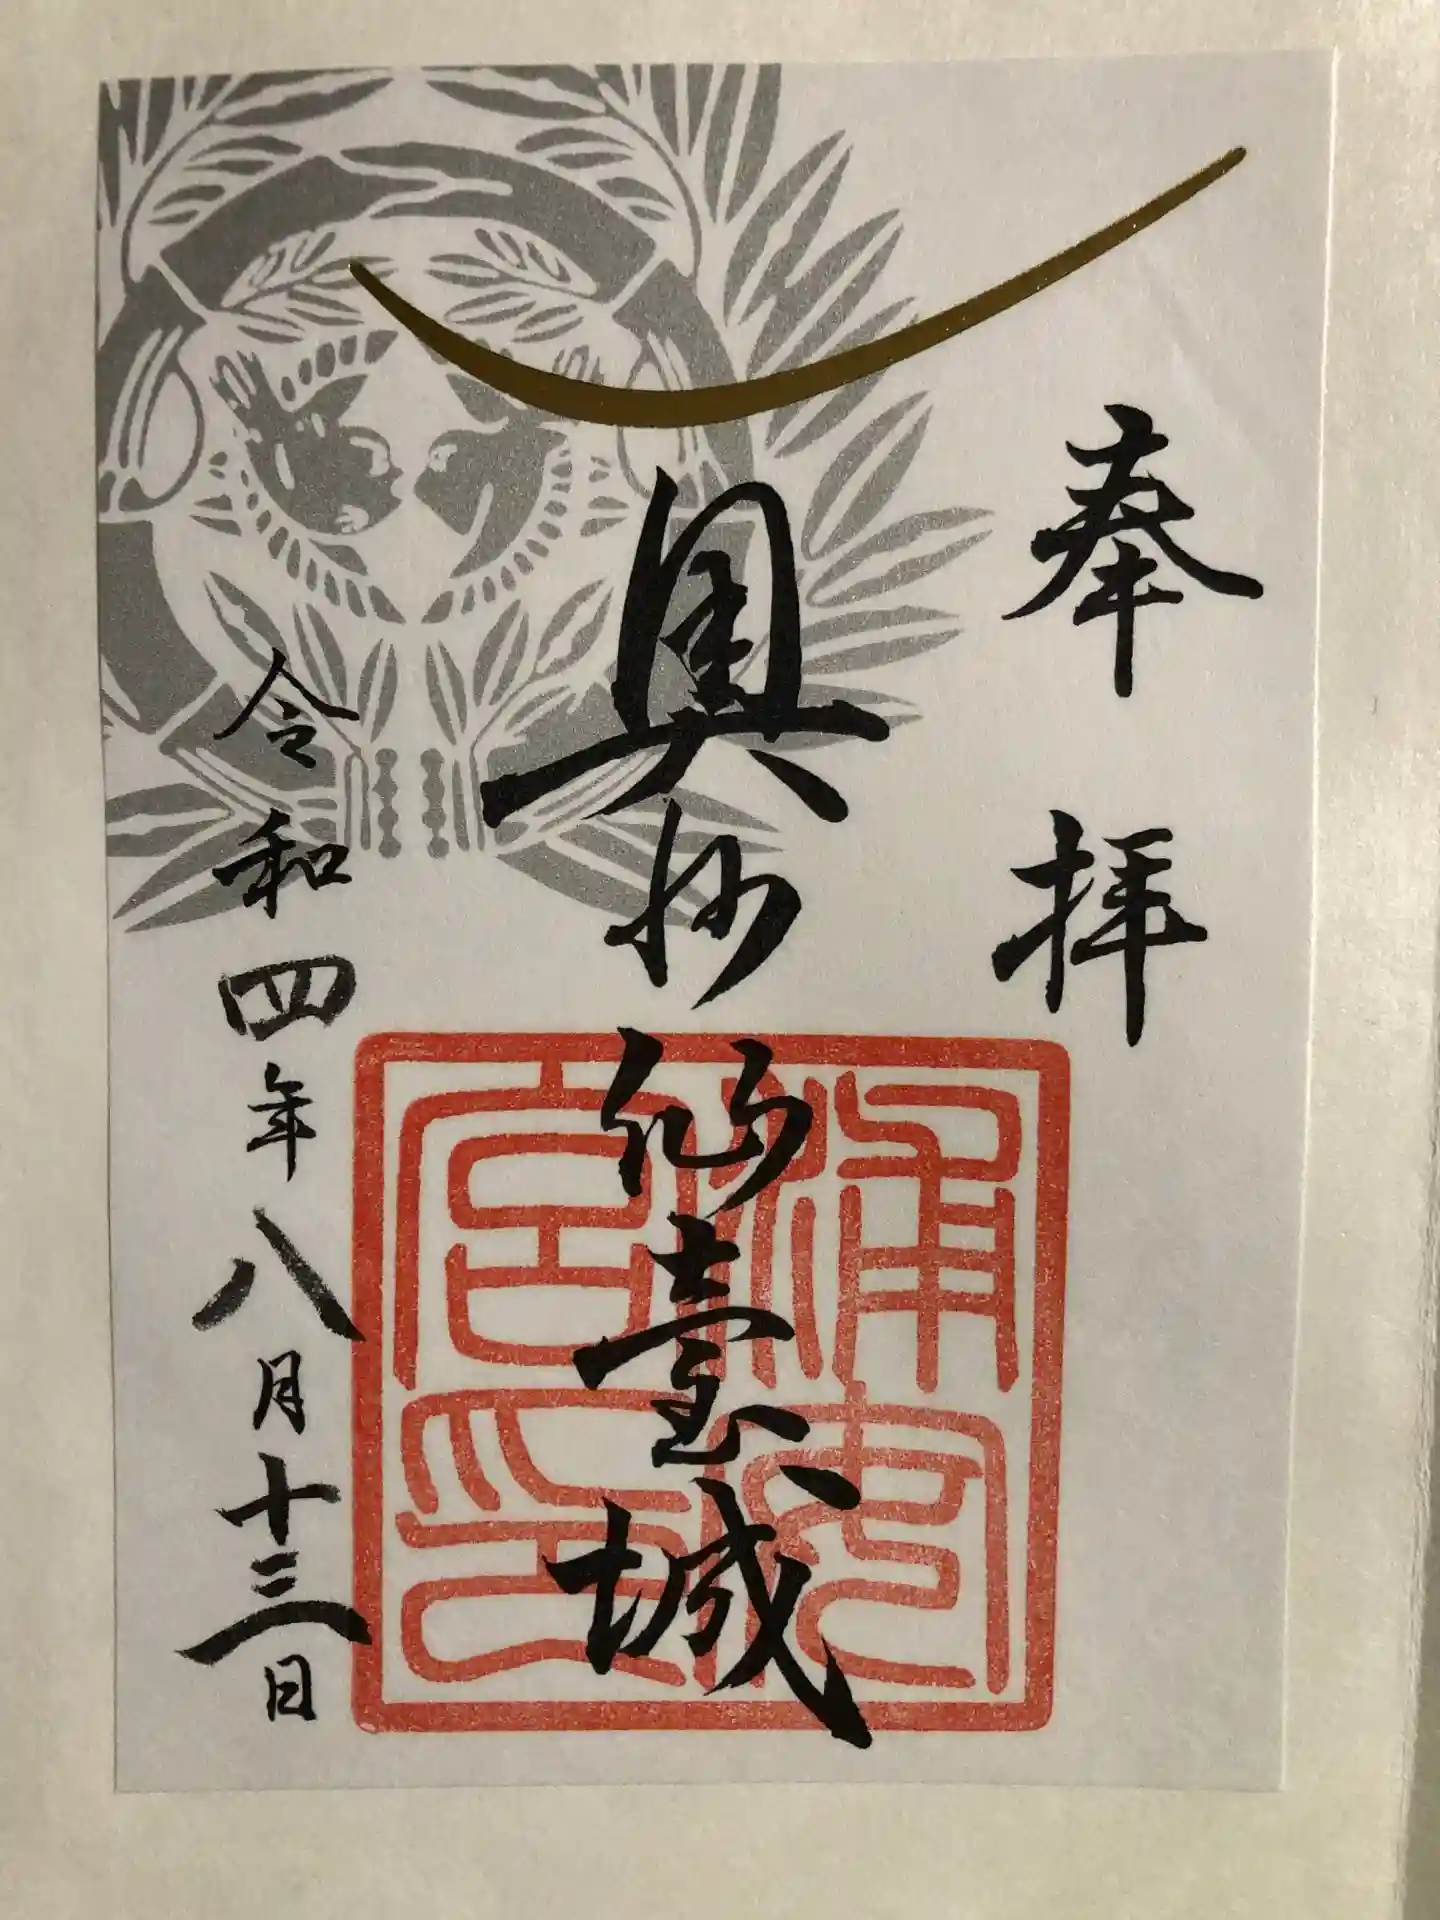 奉拝
奥州仙臺城
浦安宮印
令和四年八月十三日